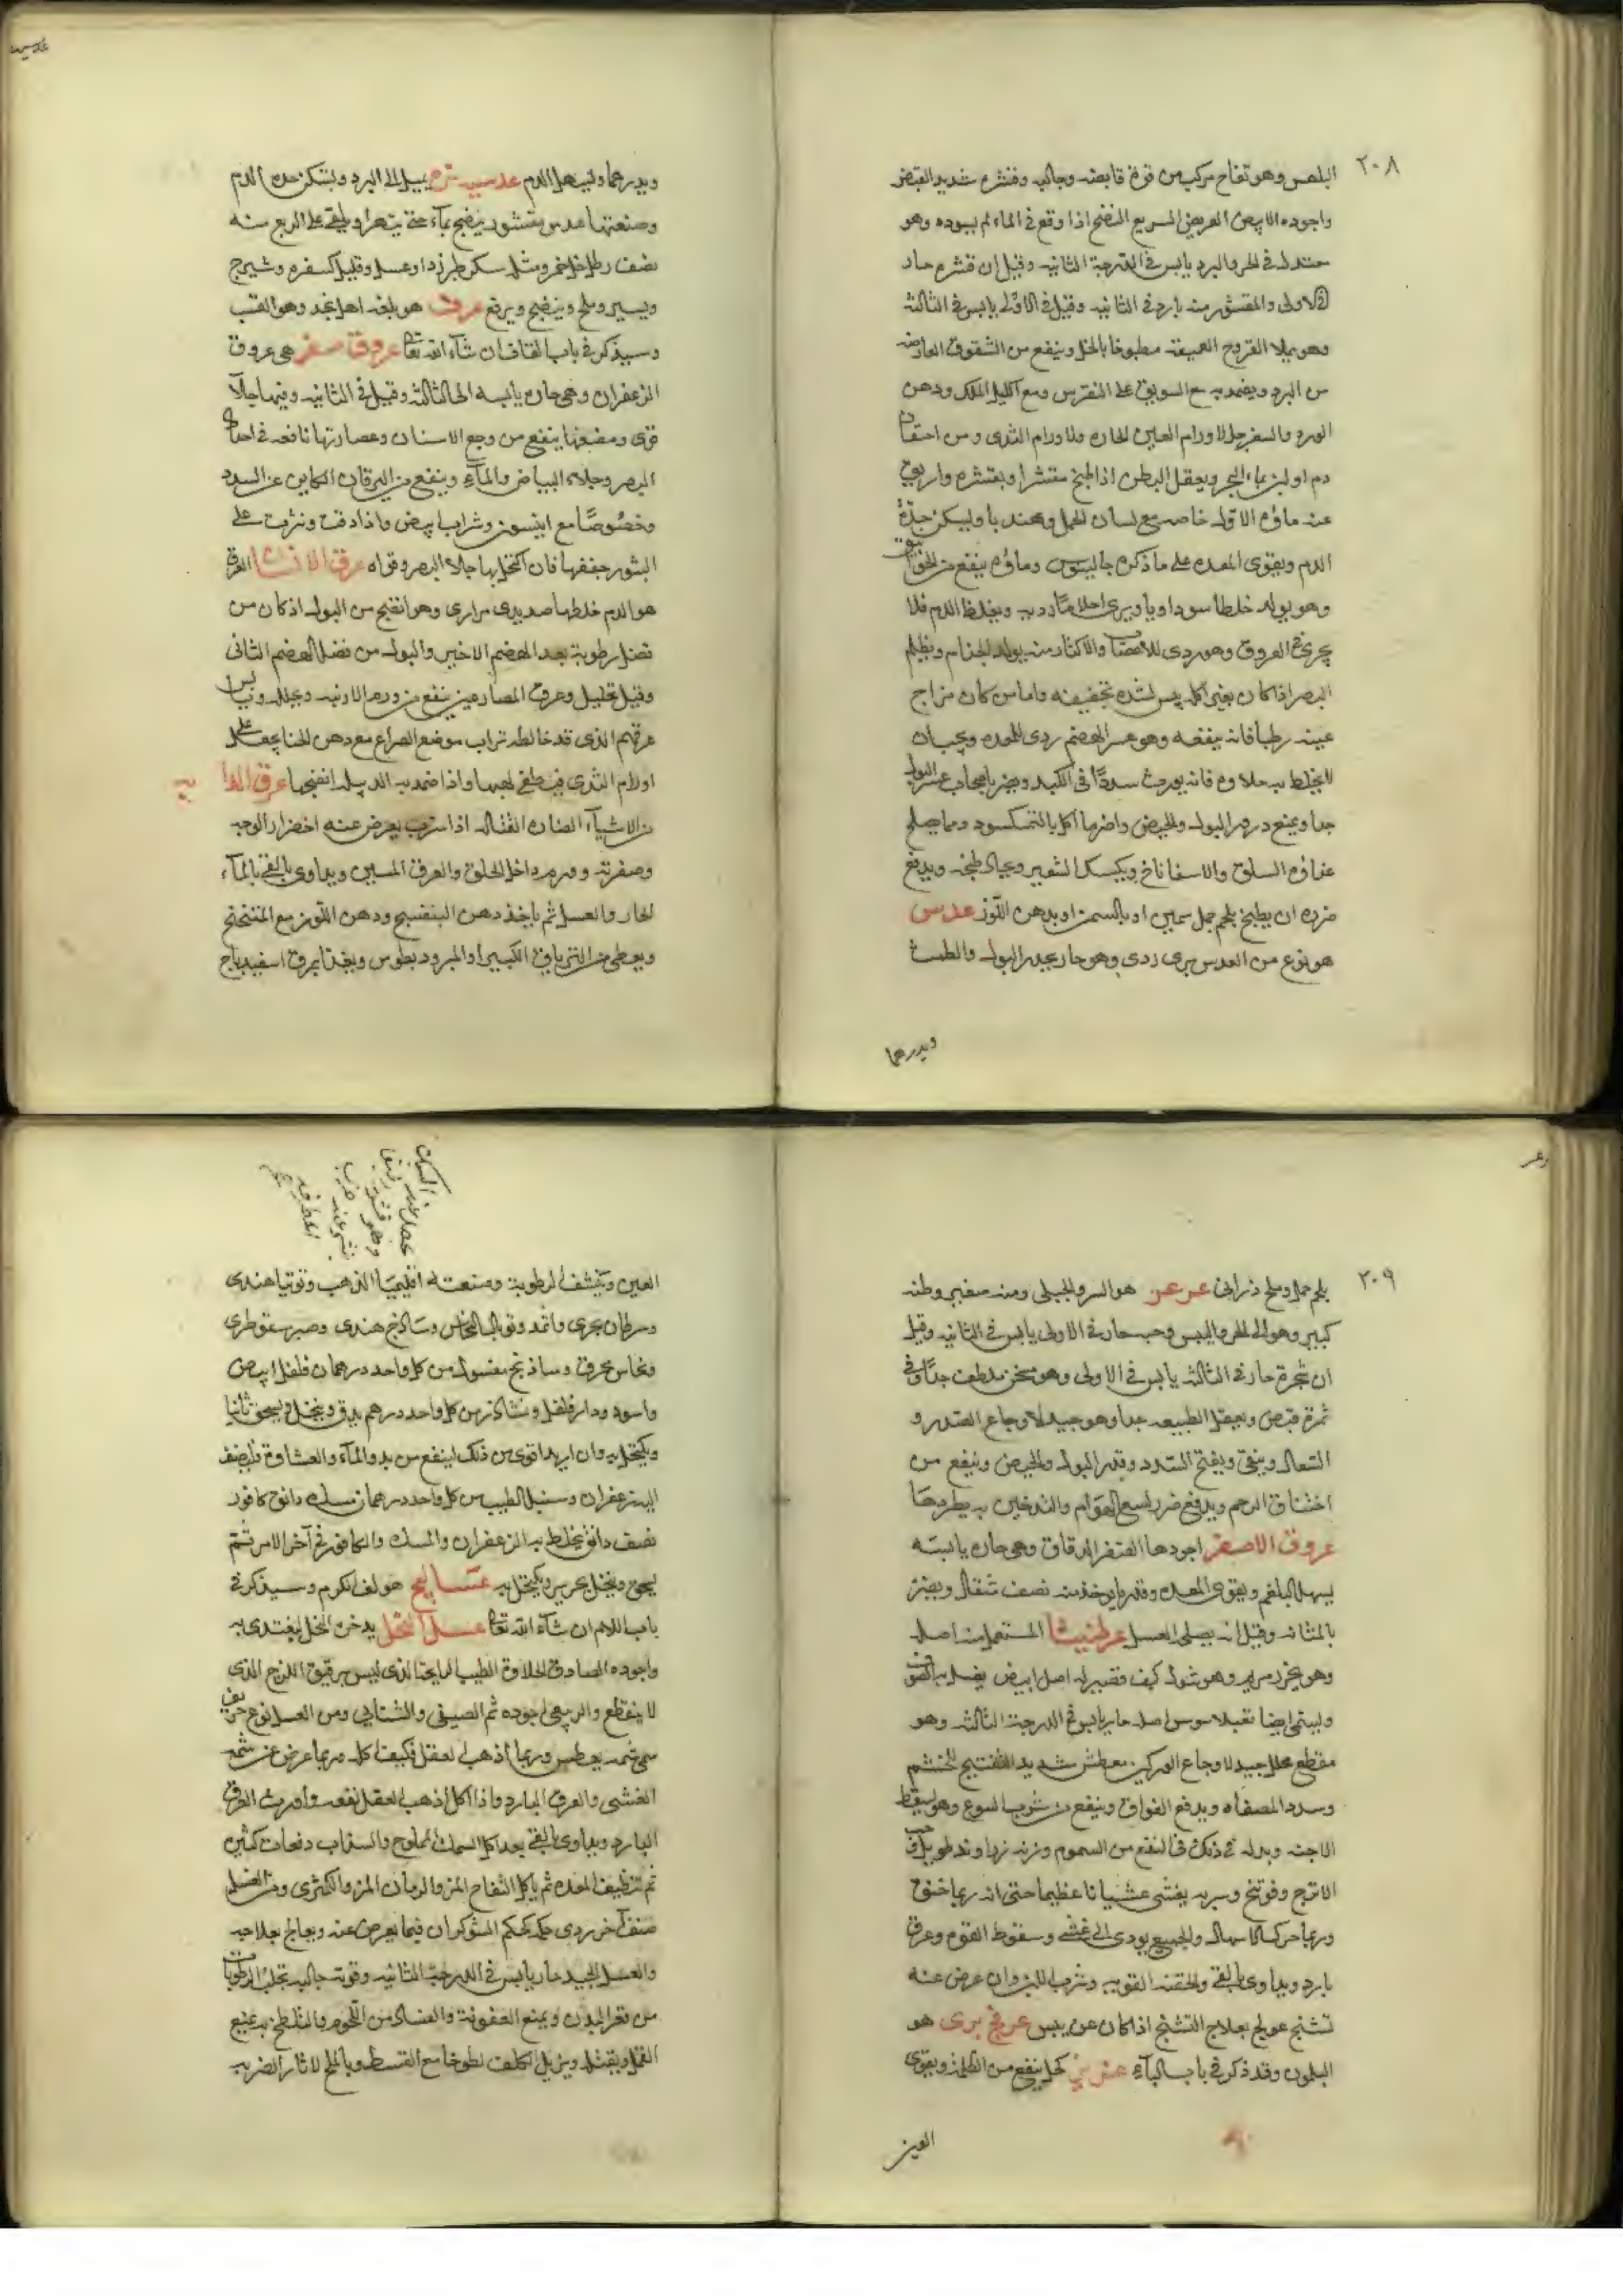 ٢٠٨
البلهس وهو نفاخ مركب من قوة قابضة وجالية وقشره شديد القبض
واجوده الابيض العريض السريع النضج اذا وقع في الماء لم يسوده وهو
معتدل في الحر والبرد يابس في الدرجة الثانية وقيل ان قشره حار
في الاولى والمقشور منه بارد في الثانية وقيل في الاولى يابس في الثالثة
وهو يملا القروح العميقة مطبوخا بالخل وينفع من الشقوق العارضة
من البرد ويضمد به مع السويق على النقرس ومع اكليل الملك ودهن
الورد والسفرجل لاورام العين الحارة ولاورام الثدى ومن احتقان
دم او لبن بماء البحر ويعقل البطن اذا طبخ مقشرا وبقشره واريق
عنه ماؤه الاول خاصة مع لسان الحمل وهندبا ويسكن حدة
الدم ويقوى المعدة على ما ذكره جالينوس وماؤه ينفع من الخوانيق
وهو يولد خلطا سوداويا ويرى احلاما ردية ويغلظ الدم فلا
يجرى في العروق وهو ردى للاعصاب والاكثار منه يولد الجذام ويظلم
البصر اذا كان بغير اكله يبس لشدة تجفيفه واما من كان مزاج
عينه رطبا فانه ينفعه وهو عسر الهضم ردى للمعدة ويجب ان
لا يخلط به حلاوة فانه يورث سددا في الكبد ويضر باصحاب عسر البول
جدا ويمنع درور البول والحيض واضر ما اكل بالنمكسود ومما يصلح
غذاؤه السلق والاسفاناخ وبكشك الشعير ويجاد طبخه ويدفع
ضرره ان يطبخ بلحم حمل سمين او بالسمن او بدهن اللوز عدس
هو نوع من العدس برى ردى وهو حار يدر البول والطمث
ويدرهما
ويدرهما ويسهل الدم عدسية مزه يميل الى البرد ويسكن حدة الدم
وصنعتها عدس مقشور ينضج بماء حتى يتهرا ويلقى على الربع منه
نصف رطل خل خمر ومثله سكر طبرزد او عسل وقليل كسفره وشيرج
ويسير وملح وينضج ويرفع هو بلغة اهل نجد وهو القنب
وسيذكر في باب القاف ان شاء الله تعا عروق صفر هى عروق
الزعفران وهى حارة يابسة الى الثالثة وقيل في الثانية وفيها جلآ
قوى ومضغها ينفع من وجع الاسنان وعصارتها نافعة في احداد
البصر وجلاء البياض والمآء وينفع من اليرقان الكاين عن السدد
وخصوصًا مع انيسون وشراب ابيض واذا دقت ونثرت على
البثور جففها فان اكتحل بها جلا البصر وقواه عرق الانسان العرق
هو الدم خلطها صديدى مرارى وهو انضج من البول اذ كان من
فضل رطوبة بعد الهضم الاخير والبول من فضل الهضم الثانى
وفيه تحليل وعرق المصارعين ينفع من ورم الاربية ويحلله
عرقهم الذى قد خالطه تراب موضع الصراع مع دهن الحنا يجعل على
اورام الثدى فيطفى لهيبها واذا ضمد به الدبيلة انضجها عرق الدابه
من الاشيآء الضاره القتاله اذا شرب يعرض عنه اخضرار الوجه
وصفرته وورم داخل الحلق والعرق المنتن ويداوى بالقى بالمآء
الحار والعسل ثم ياخذ دهن البنفسج ودهن اللوز مع المنتخنج
ويعطى من الترياق الكبير او المبرود بطوس ويغذا بمرق اسفيدباج
٢٠٩
بلحم حمل وملح ذرانى عرعر هو السرو الجبلى ومنه صغير وطنه
كبير وهو الى الحر واليبس وحبه حار في الاولى يابس في الثانية وقيل
ان شجره حار في الثالثة يابس في الاولى وهو مسخن ملطف جدًا وفي
ثمرة قبض ويعقل الطبيعة جدا وهو جيد لاوجاع الصدر و
السعال وينقى ويفتح السدد ويدر البول والحيض وينفع من
اختناق الرحم ويدفع ضرر لسع الهوام والتدخين به يطردها
عروق الاصفر اجودها الصفر الدقاق وهى حارة يابسة
يسهل البلغم ويقوى المعدة وقدر ما يوخذ منه نصف مثقال ويضر
بالمثانة وقيل انه يصلحه العسل عرطنيثا المستعمل منه اصله
وهو بخور مريم وهو شوك كيف وقصير له اصل ابيض يغسل به الصوف
ويسمى ايضا اصله حار يابس في الدرجة الثالثة وهو
مقطع محلل جيد لاوجاع الوركين معطش شديد التفتيح للخشم
وسدد المصفاه ويدفع الفواق وينفع من شرب السوع وهو يسقط
الاجنة وبدله في ذلك في النفع من السموم وزنه حب
الاترج وفوتنج وسربه يغشى غشيانا عظيما حتى انه ربما خنق
وربما حرك الاسهال والجميع يودى الى غشى وسقوط القوه وعرق
بارد ويداوى بالقى والحقنة القوية وشرب اللبن وان عرض عنه
تشنج عولج بعلاج التشنج اذا كان عن يبس عرفج برى هو
البلهون وقد ذكر في باب البآء كحل ينفع من الظلمة ويقوى
العين
العين وينشف الرطوبة وصنعته اقليميا الذهب وتوتيا هندى
وسرطان بحرى واثمد وتوبال النحاس وساذج هندى وصبر سقوطرى
ونحاس محرق وساذنج مغسول من كل واحد درهمان فلفل ابيض
واسود ودار فلفل ونشادر من كل واحد درهم يدق وينخل ويسحق ثانيا
ويكتحل به وان اريد اقوى من ذلك لينفع من بدو المآء والعشاوة فليضف
اليه زعفران وسنبل الطيب من كل واحد درهمان مسك دانق كافور
نصف دانق يخلط به الزعفران والمسك والكافور في آخر الامر ثم
يسحق وينخل بحرير ويكتحل به عساليج هو لف الكرم وسيذكر في
باب اللام ان شاء الله تعا عسل النحل يدخره النحل ليغتدى به
واجوده الصادق الحلاوة الطيب الرايحة الذى ليس برقيق اللزج الذى
لا ينقطع والربيعى اجوده ثم الصيفى والشتايى ومن العسل نوع حريف
سمى شمه يعطس وربما اذهب العقل فكيف اكله وربما عرض عن شمه
الغشى والعرق البارد واذا اكل اذهب العقل واورث العرق
البارد ويداوى بالقى بعد اكل السمك المملوح والسداب دفعات كثير
ثم تنظيف المعدة ثم ياكل التفاح المز والرمان المز والكمثرى ومن العسل
صنف آخر ردى حكمه كحكم الشوكران فيما يعرض عنه ويعالج بعلاجه
والعسل الجيد حار يابس في الدرجة الثانية وقوته جالية تجلب الرطوبات
من قعر البدن ويمنع العفونة والفساد من اللحوم والتلطخ به يمنع
القمل ويقتله ويزيل الكلف لطوخا مع القسط وبالملح لاثار الضربه